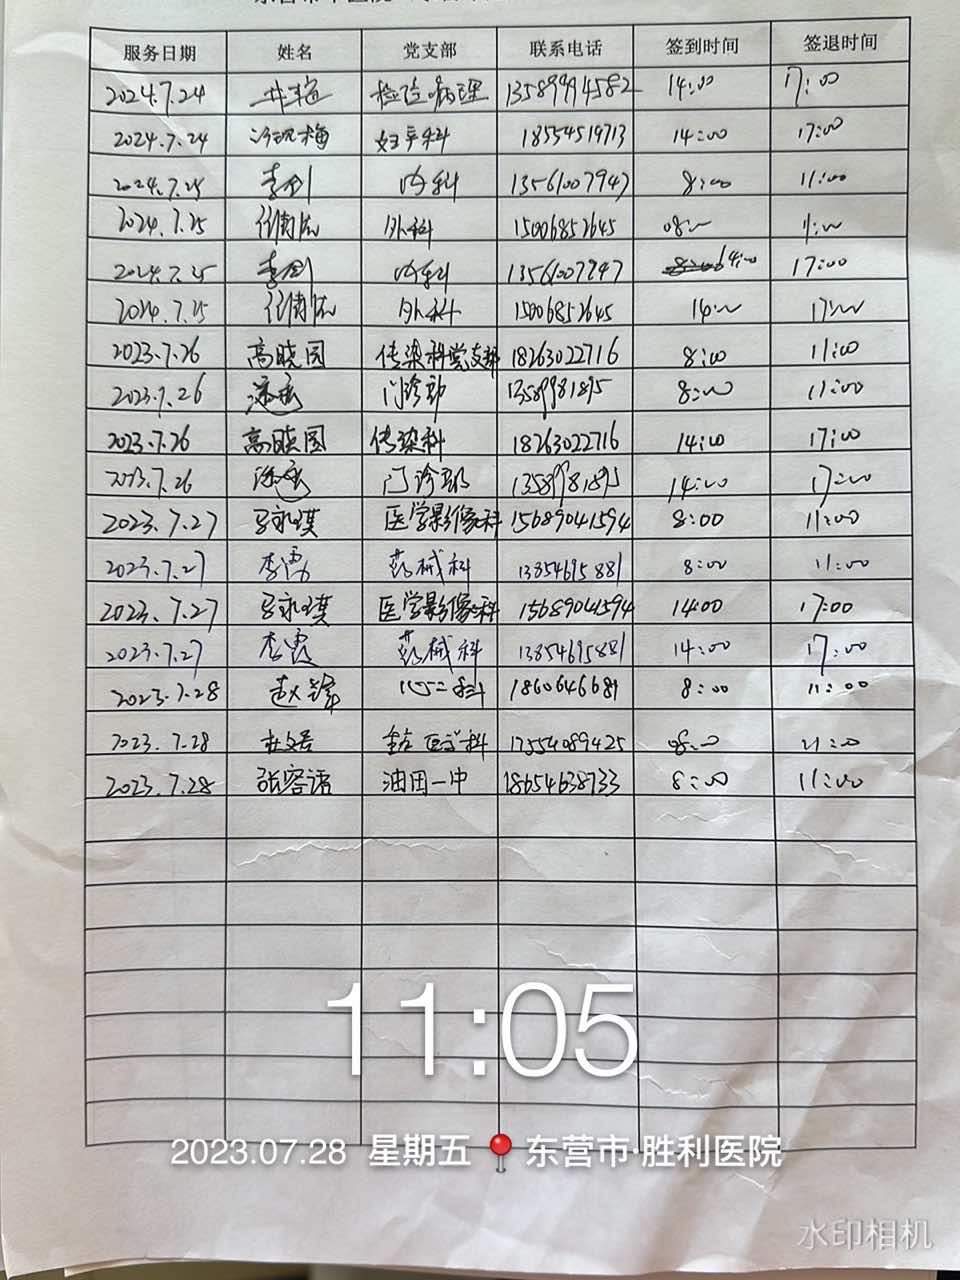 服务日期 姓名 党支部 联系电话 签到时间 签退时间
2024.7.24 检验病理 13589994582 14:00 17:00
2024.7.24 梅 妇产科 18554519713 14:00 17:00
2024.7.25 李剑 内科 13561007947 8:00 11:00
2024.7.25 外科 15006852645 08:00 11:00
2024.7.25 李剑 内科 13561007947 14:00 17:00
2024.7.25 外科 15006852645 14:00 17:00
2023.7.26 高晓园 传染科党支部 18263022716 8:00 11:00
2023.7.26 门诊部 13589981895 8:00 11:00
2023.7.26 高晓园 传染科 18263022716 14:00 17:00
2023.7.26 门诊部 13589981895 14:00 17:00
2023.7.27 永琪 医学影像科 15689041594 8:00 11:00
2023.7.27 李霞 药械科 13854695881 8:00 11:00
2023.7.27 永琪 医学影像科 15689041594 14:00 17:00
2023.7.27 李霞 药械科 13854695881 14:00 17:00
2023.7.28 心二科 1860646681 8:00 11:00
2023.7.28 杜文君 重症医学科 17554089425 08:00 11:00
2023.7.28 张容语 油田一中 18654638733 8:00 11:00
11:05
2023.07.28 星期五 东营市·胜利医院
水印相机